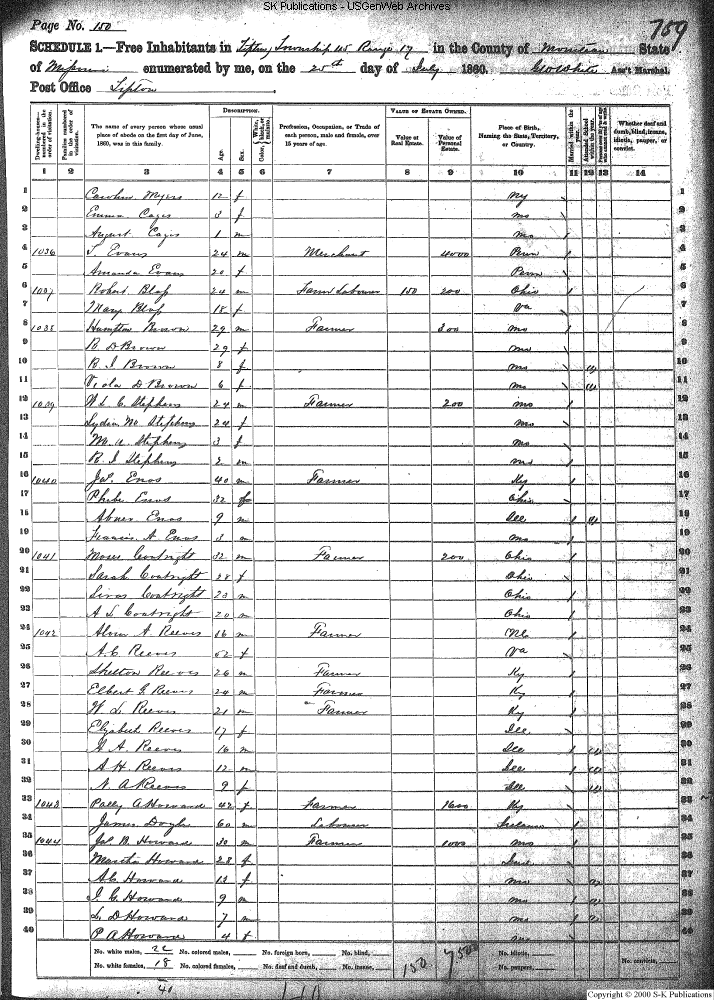 SK Publications - USGenWeb Archives
Page No. 150
759
SCHEDULE 1.—Free Inhabitants in Tipton Township 45 Range 17 in the County of Moniteau State
of Missouri enumerated by me, on the 25th day of July 1860. Ass't Marshal.
Post Office Tipton
Dwelling-houses—numbered in the order of visitation.
Families numbered in the order of visitation.
The name of every person whose usual place of abode on the first day of June, 1860, was in this family.
DESCRIPTION.
Age.
Sex.
Color, White, black, or mulatto.
Profession, Occupation, or Trade of each person, male and female, over 15 years of age.
VALUE OF ESTATE OWNED.
Value of Real Estate.
Value of Personal Estate.
Place of Birth, Naming the State, Territory, or Country.
Married within the year.
Attended School within the year.
Whether deaf and dumb, blind, insane, idiotic, pauper, or convict.
1 2 3 4 5 6 7 8 9 10 11 12 13 14
1 Myers 12 f Ny 1
2 Emma 3 f Mo 2
3 August 1 m Mo 3
4 1036 Evans 24 m Merchant 4000 Penn 4
5 Amanda Evans 20 f Penn 5
6 1037 Robert 24 m Farm Labourer 150 200 Ohio 6
7 Mary 18 f Va 7
8 1038 Hampton Brown 29 m Farmer 300 Mo 8
9 R D Brown 29 f Mo 9
10 R. J. Brown 8 f Mo 10
11 Viola D Brown 6 f Mo 11
12 1039 W L C Stephens 24 m Farmer 200 Mo 12
13 Lydia M. Stephens 24 f Mo 13
14 M. A. Stephens 3 f Mo 14
15 R. J Stephens 2 m Mo 15
16 1040 Jas. Enos 40 m Farmer Ky 16
17 Phebe Enos 32 f Ohio 17
18 Abner Enos 9 m Ill 18
19 Francis A Enos 3 m Mo 19
20 1041 Moses Coatright 32 m Farmer 200 Ohio 20
21 Sarah Coatright 28 f Ohio 21
22 Coatright 23 m Ohio 22
23 A L Coatright 20 m Ohio 23
24 1042 A Reeves m Farmer 24
25 A. C. Reeves 52 f Va 25
26 Shelton Reeves 26 m Farmer Ky 26
27 Elbert G. Reeves 24 m Farmer Ky 27
28 W L. Reeves 21 m Farmer Ky 28
29 Elizabeth Reeves 17 f Ill 29
30 A. Reeves 16 m Ill 30
31 A H. Reeves 12 m Ill 31
32 N. A Reeves 9 f Ill 32
33 1043 Polly A Howard 42 f Farmer 1600 Ky 33
34 James Doyle 60 m Labourer Ireland 34
35 1044 Jas B. Howard 30 m Farmer 1000 Mo 35
36 Martha Howard 28 f 36
37 A C Howard 13 f Mo 37
38 J. C. Howard 9 m Mo 38
39 L. D Howard 7 m Mo 39
40 P A Howard 4 f Mo 40
No. white males, 22 No. colored males, No. foreign born, No. blind, No. idiotic,
No. white females, 18 No. colored females, No. deaf and dumb, No. insane, 150 7500 No. paupers, No. convicts,
40
Copyright © 2000 S-K Publications